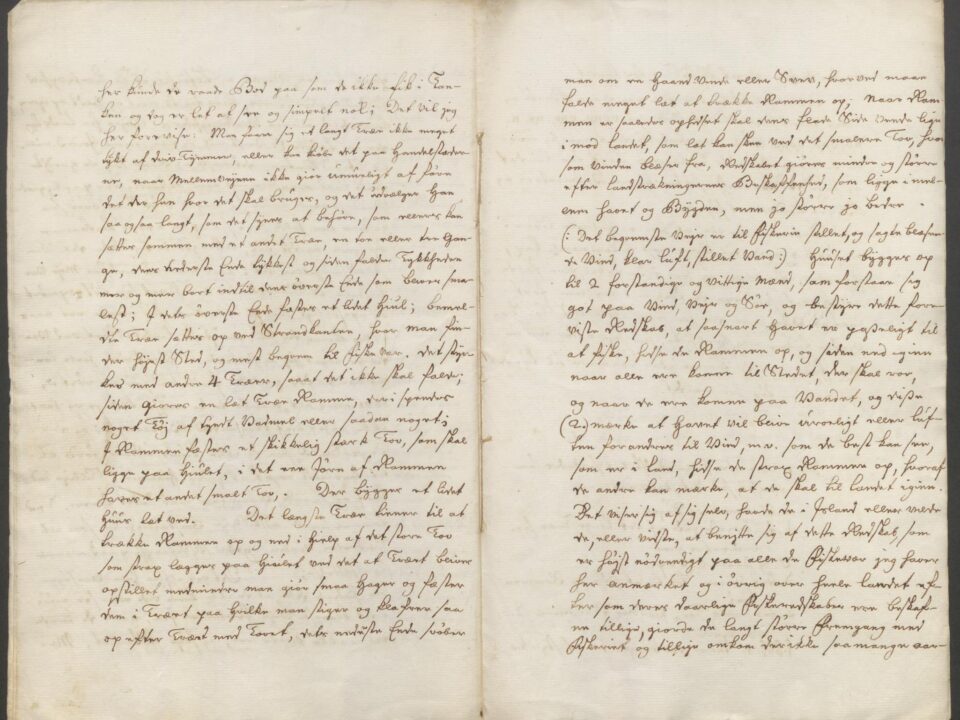 her kunde de raade Bod paa som de ikke fik i Tan-
ken og dog er let af see og simpelt nok; Det vil jeg
her forevise: Man faaer sig et langt Træ ikke meget
tykt af deres Tømmer, eller kan kiöbe det paa Handelstæder-
ne, naar Mellemveyene ikke giör umueligt at före
det der hen hvor det skal bruges, og det udvælges
saa og saa langt, som det synes at behöve, som ellers kan
sættes sammen med et andet Træ, en toe eller tre Gan-
ge, dens nederste Ende tykkest og siden falder Tykkheden
mer og mer bort indtil dens överste Ende som bliver smal-
lest; I dets överste Ende fæstes et lidet Hiul; bemel-
die Træ sættes op ved Strandkanten, hvor man fin-
der höyest Sted, og mest beqvem til Fiskevær. Det styr-
kes med andre 4 Træer, saa at det ikke skal falde;
siden giöres en let Træ Ramme, der i spendes
noget Töj af tyndt Vadmel eller saadan noget;
I Rammen fæstes et skikkelig stærk Tov, som skal
ligge paa Hiulet, i det ene Jörn af Rammen
haves et andet smalt Tov,. Der bygges et lidet
Huus tæt ved. Det længste Træ tiener til at
trække Rammen op og ned i Hielp af det store Tov
som strax lægges paa Hiulet ved det at Træet bliver
opstillet medmindre man giör smaa Hager og fæster
dem i Træet paa hvilke man stiger og klavrer saa
op efter Træet med Tovet, dets nederste Ende svöber
man om en Haand Vinde eller Svev, hvorved maae
falde meget let at trække Rammen op; Naar Ram-
men er saaledes ophidset skal dens flade Side vende lige
imod landet, som let kan skee ved det smalere Tov, hvor
som Vinden blæser fra, Redskabet giöres mindre og större
efter Landstrækningernes Beskaffenhed, som ligge imel-
lem havet og Bygden, men jo större jo bedre.
(: Det beqvemste Vejr er til Fiskerie stillet, og sagte blæsen-
de Vind, klar luft, stillet Vand:) Huuset bygges op
til 2 forstandige og vittige Mænd, som forstaaer sig
got paa Vind, Vejr og Söe, og bestyre dette fore-
viste Redskab, at saasnart Havet er passeligt til
at fiske, hidse de Rammen op, og siden ned igien
naar alle ere komne til Stedet, der skal roe,
og naar de ere komne paa Vandet, og disse
(2.) mærke at Havet vil blive uroeligt eller luf-
ten forandres til Vind, m.v. som de best kan see,
som er i land, hidse de strax Rammen op, hvoraf
de andre kan mærke, at de skal til landet igien.
Det viser sig af sig selv, havde de i Island eller vilde
de, eller vidste, at benytte sig af dette Redskab, som
er höyst nödvendigt paa alle de Fiskevær jeg haver
her anmærket og i övrig over heele landet ef-
ter som deres daarlige Fiskeredskaber ere beskaf-
ne tillige, giorde de langt större Fremgang med
Fiskeriet og tillige omkom der ikke saa mange aar-